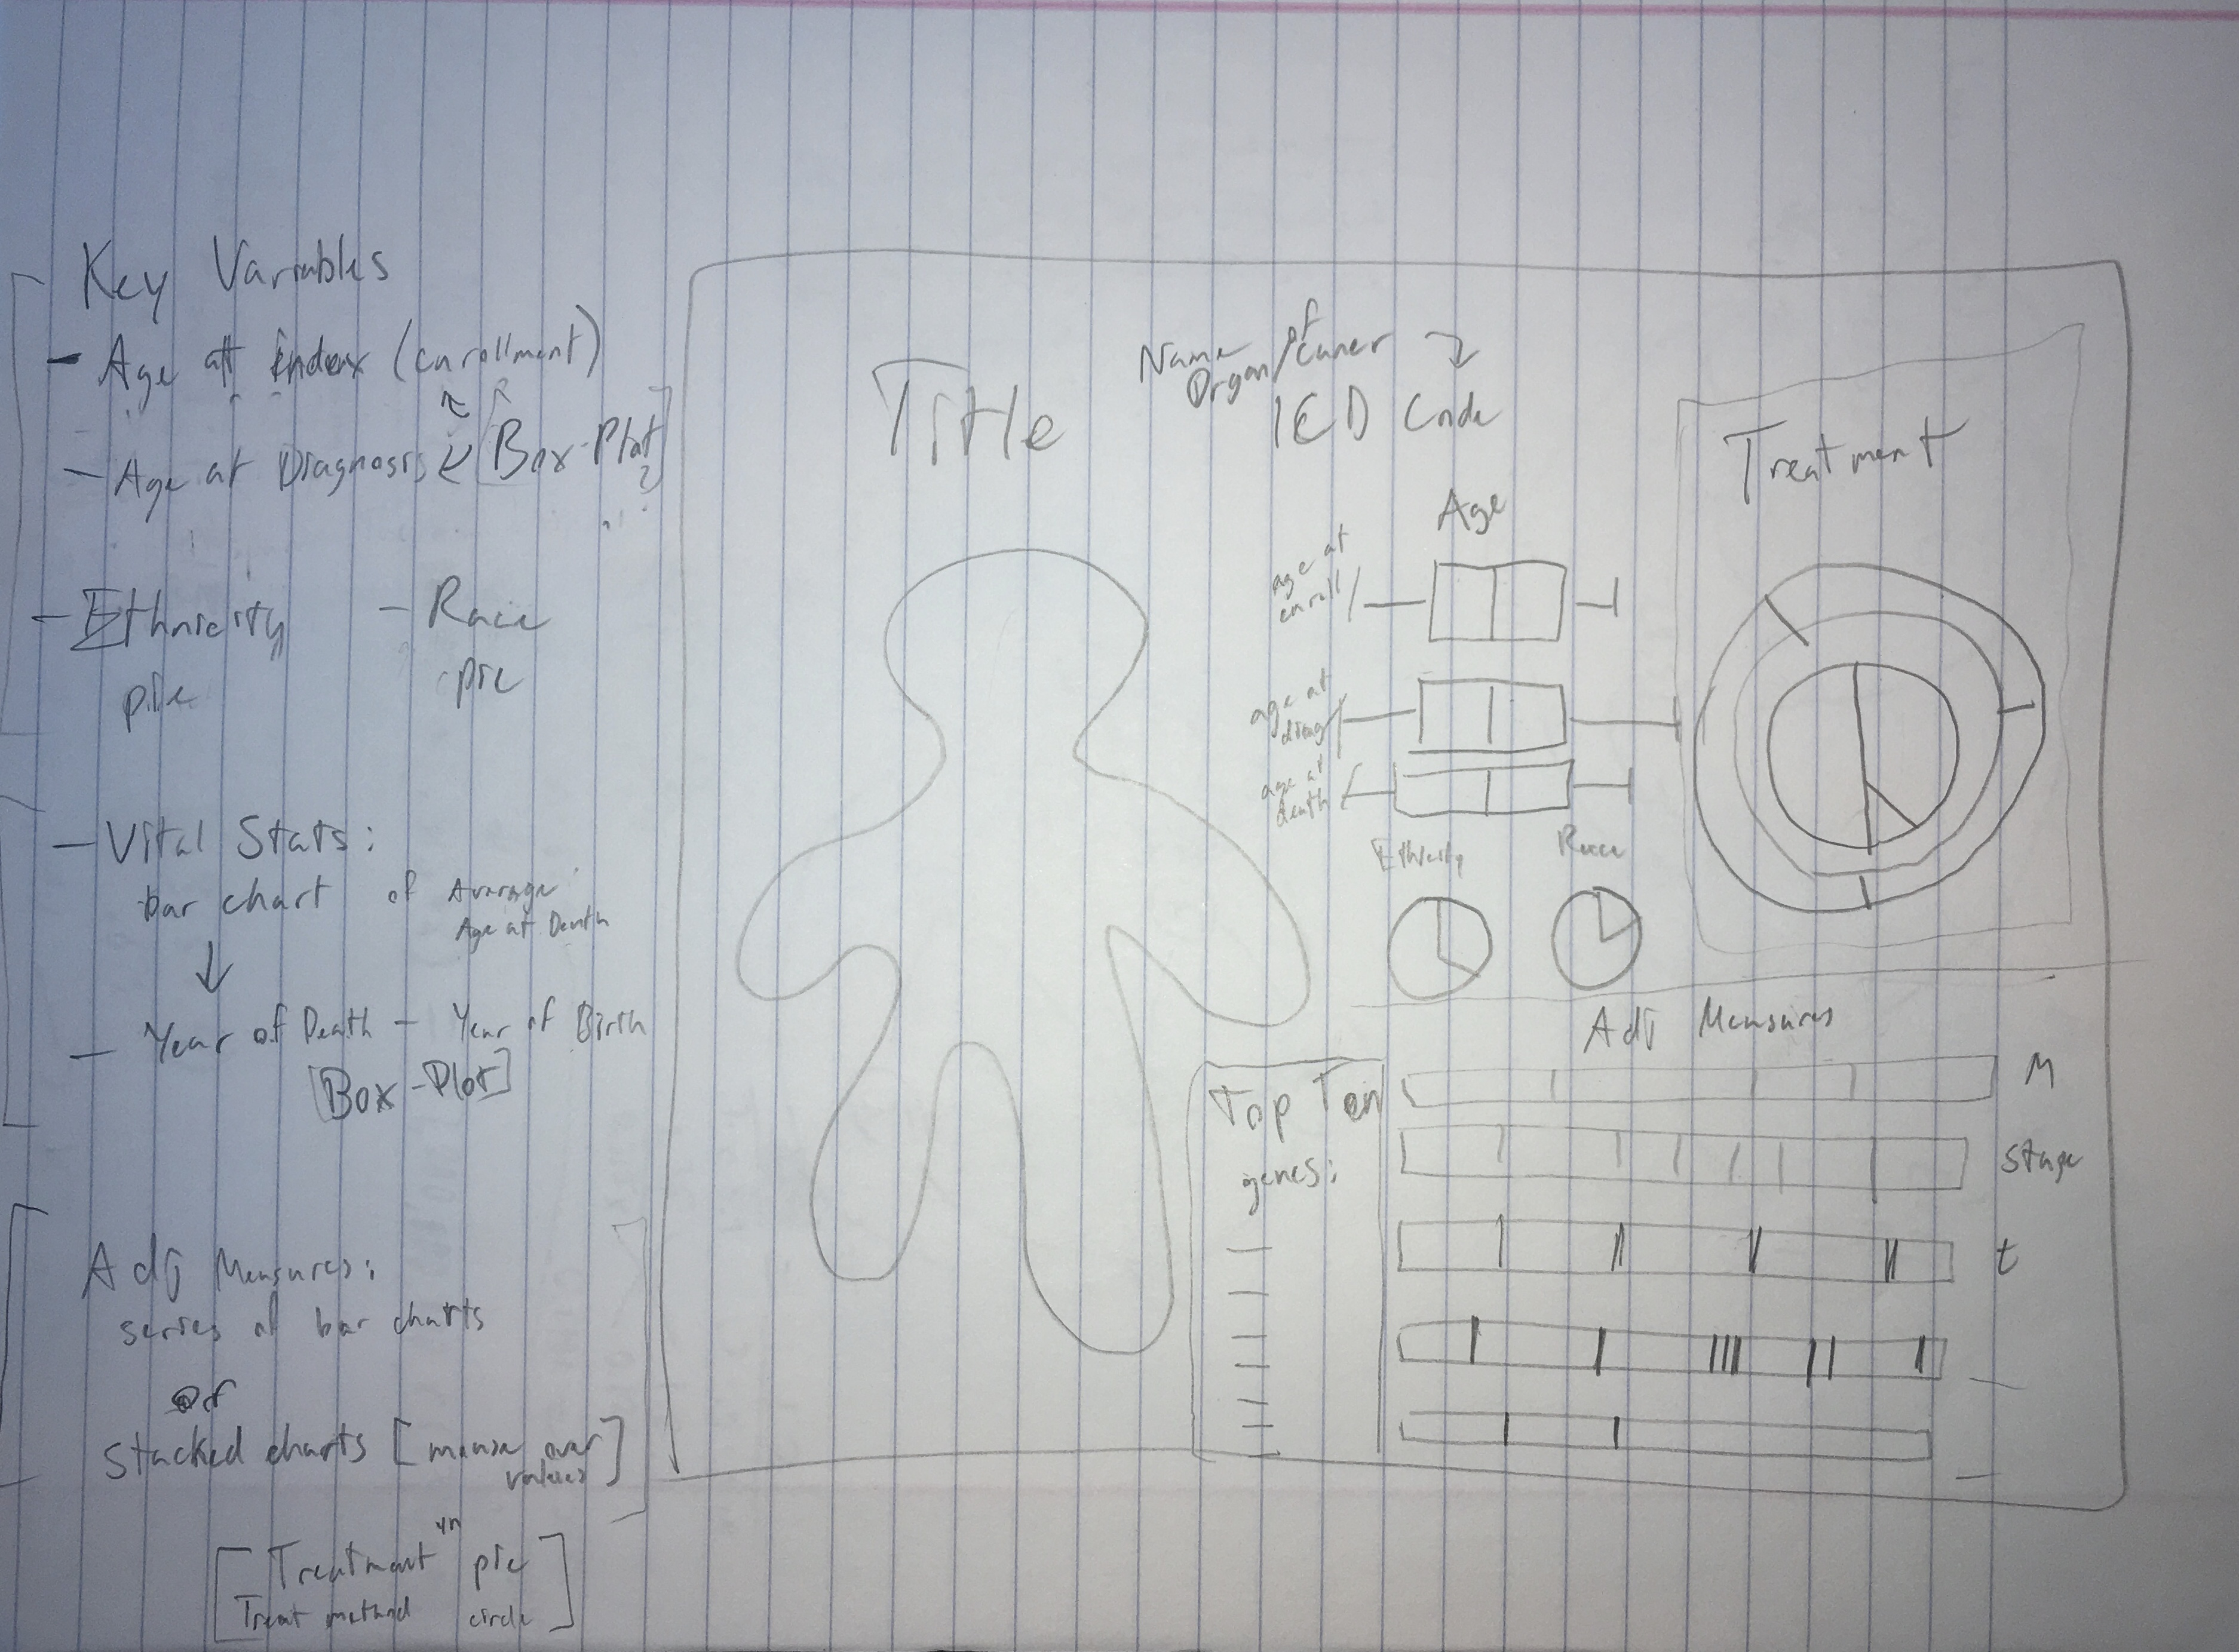 Key Variables
- Age at index (enrollment)
- Age at Diagnosis [Box-Plot ?]
- Ethnicity
pie
- Race
pie
- Vital Stats:
bar chart of Average
Age at Death
- Year of Death - Year of Birth
[Box-Plot]
Adj Measures:
series of bar charts
or
Stacked charts [mouse over
values]
[Treatment yn pie
Treat method circle]
Title
Name of
Organ/Cancer
ICD Code
Age
age at
enroll
age at
diag
age at
death
Ethnicity
Race
Treatment
Adj Measures
M
Stage
t
Top Ten
genes: